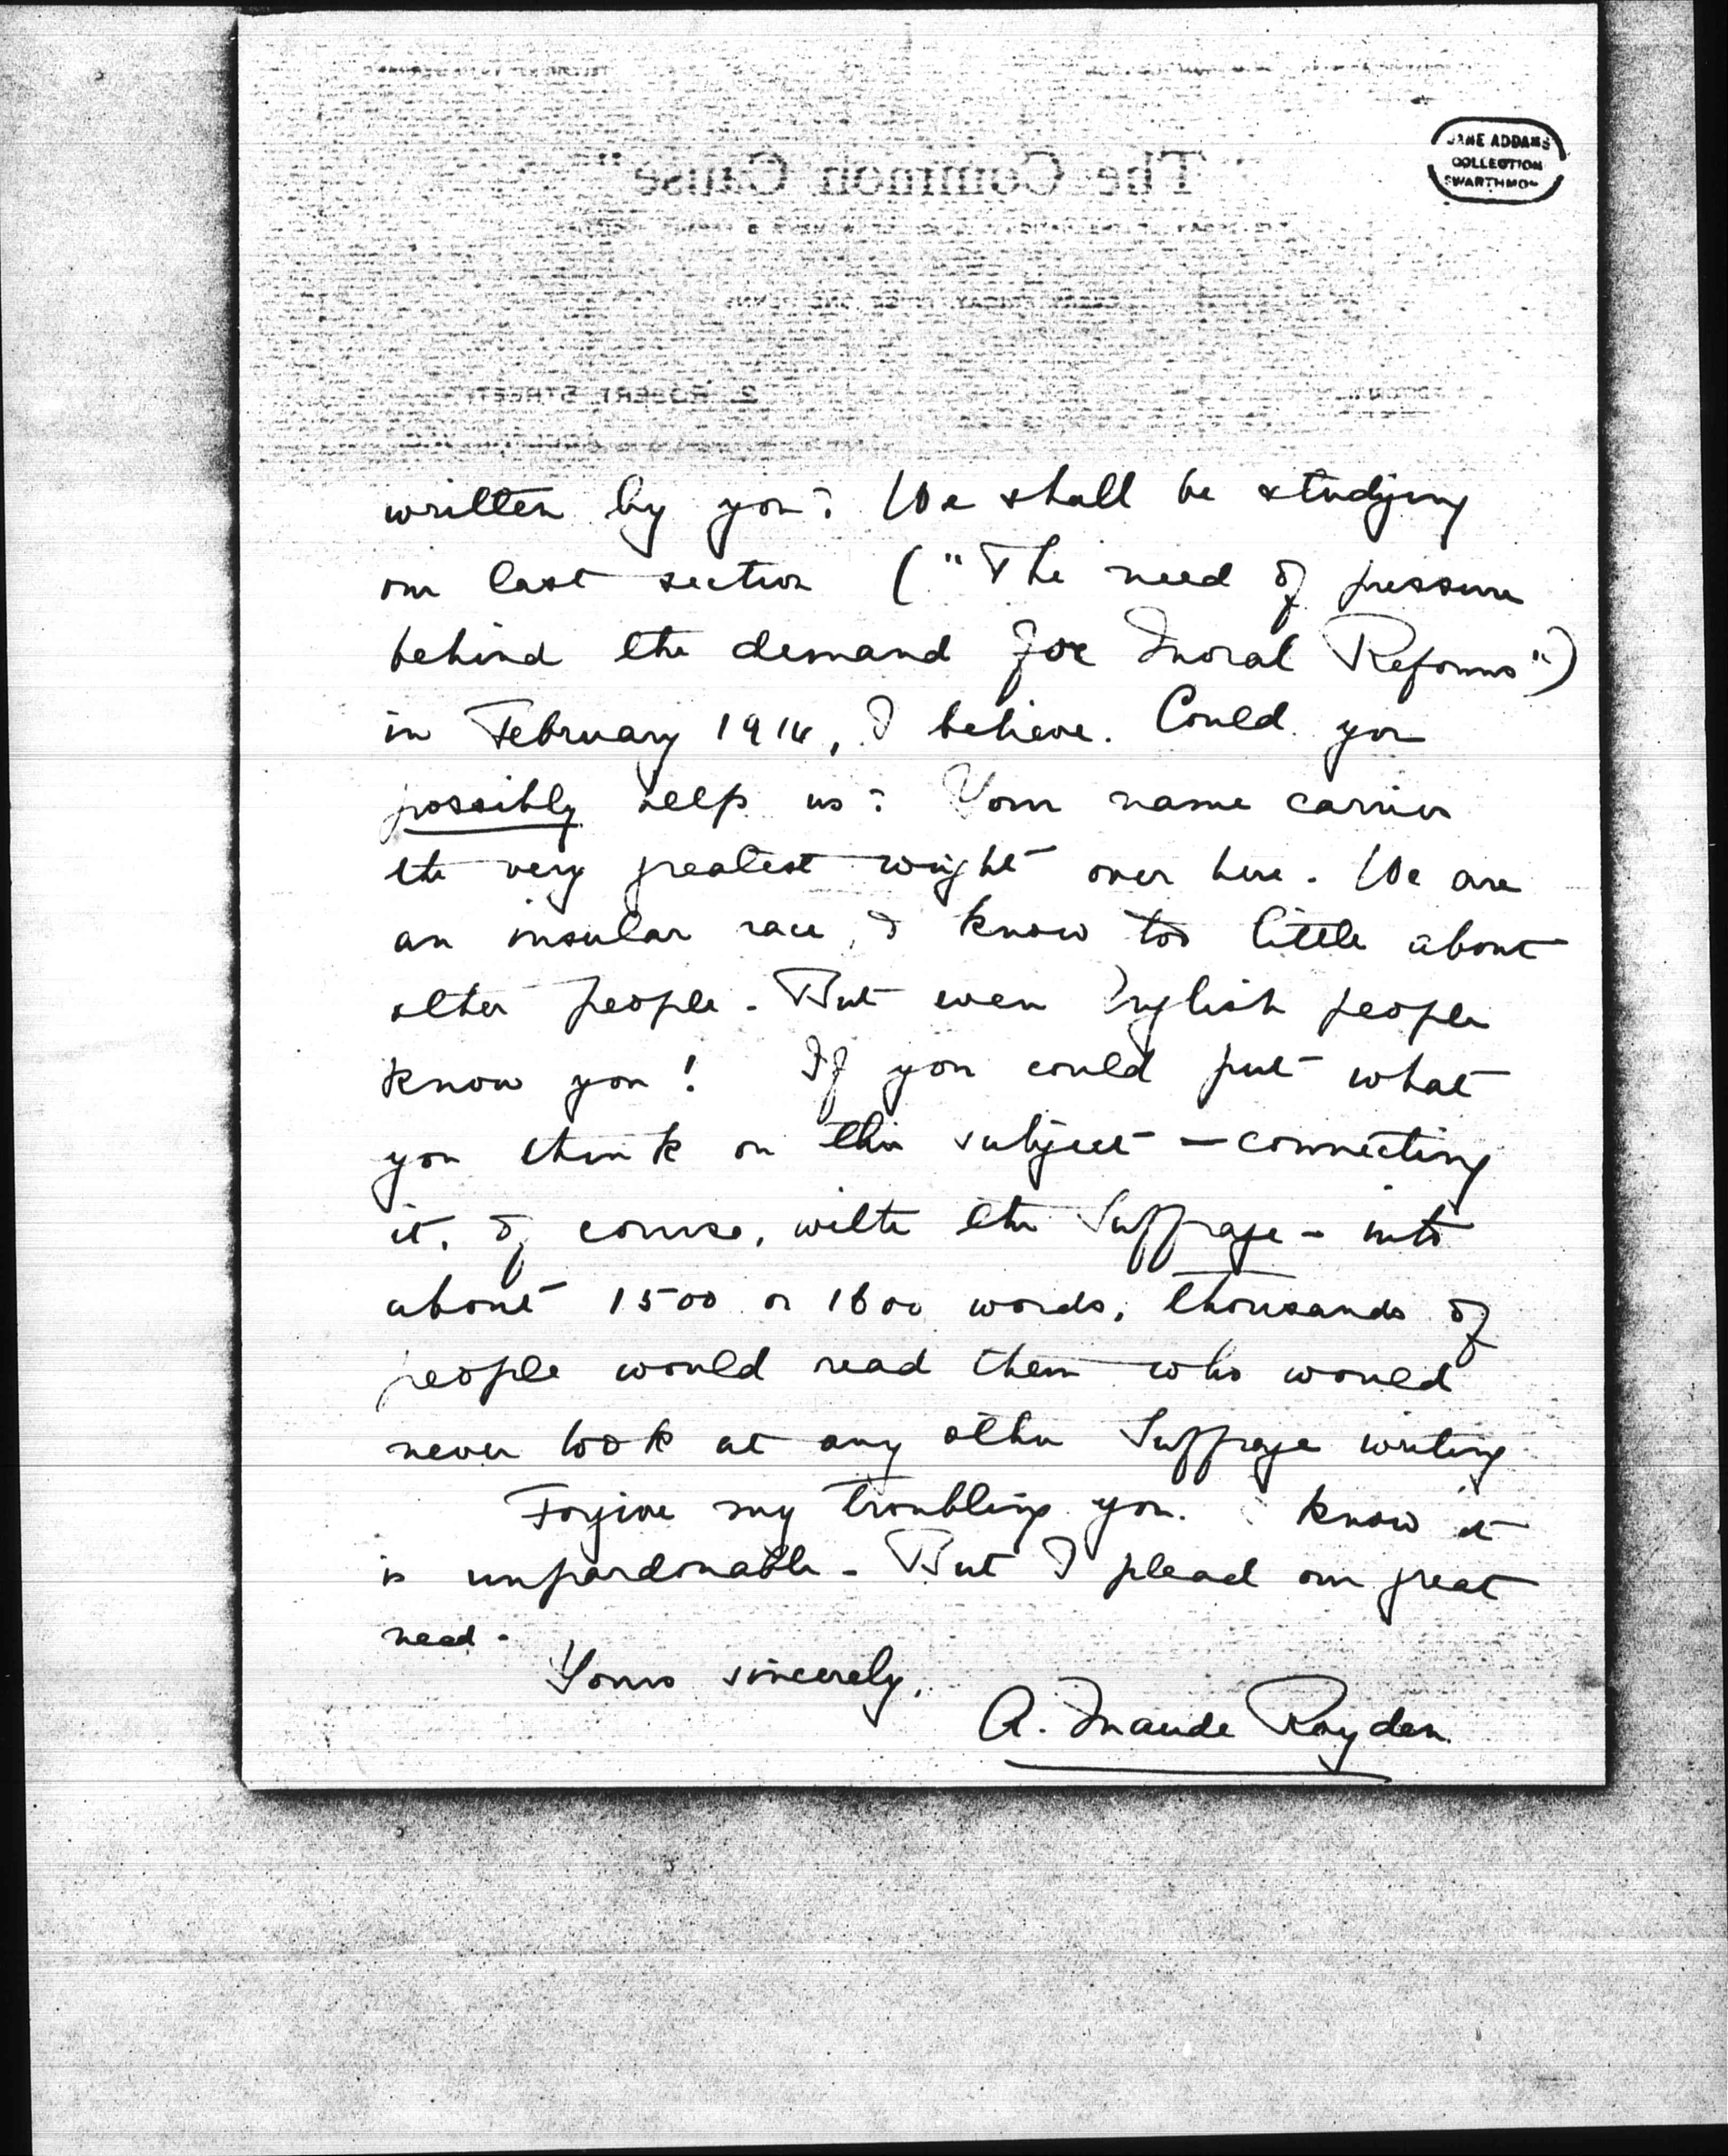 JANE ADDAMS
COLLECTION
SWARTHMO
"The Common Cause"
2, ROBERT STREET
written by you? We shall be studying
our last section ("The need of pressure
behind the demand for Moral Reforms")
in February 1914, I believe. Could you
possibly help us? Your name carries
the very greatest weight over here. We are
an insular race, & know too little about
other people. But even English people
know you! If you could put what
you think on this subject — connecting
it, of course, with the Suffrage - into
about 1500 or 1600 words, thousands of
people would read them who would
never look at any other Suffrage writing
Forgive my troubling you. I know it
is unpardonable. But I plead our great
need.
Yours sincerely,
A. Maude Royden.